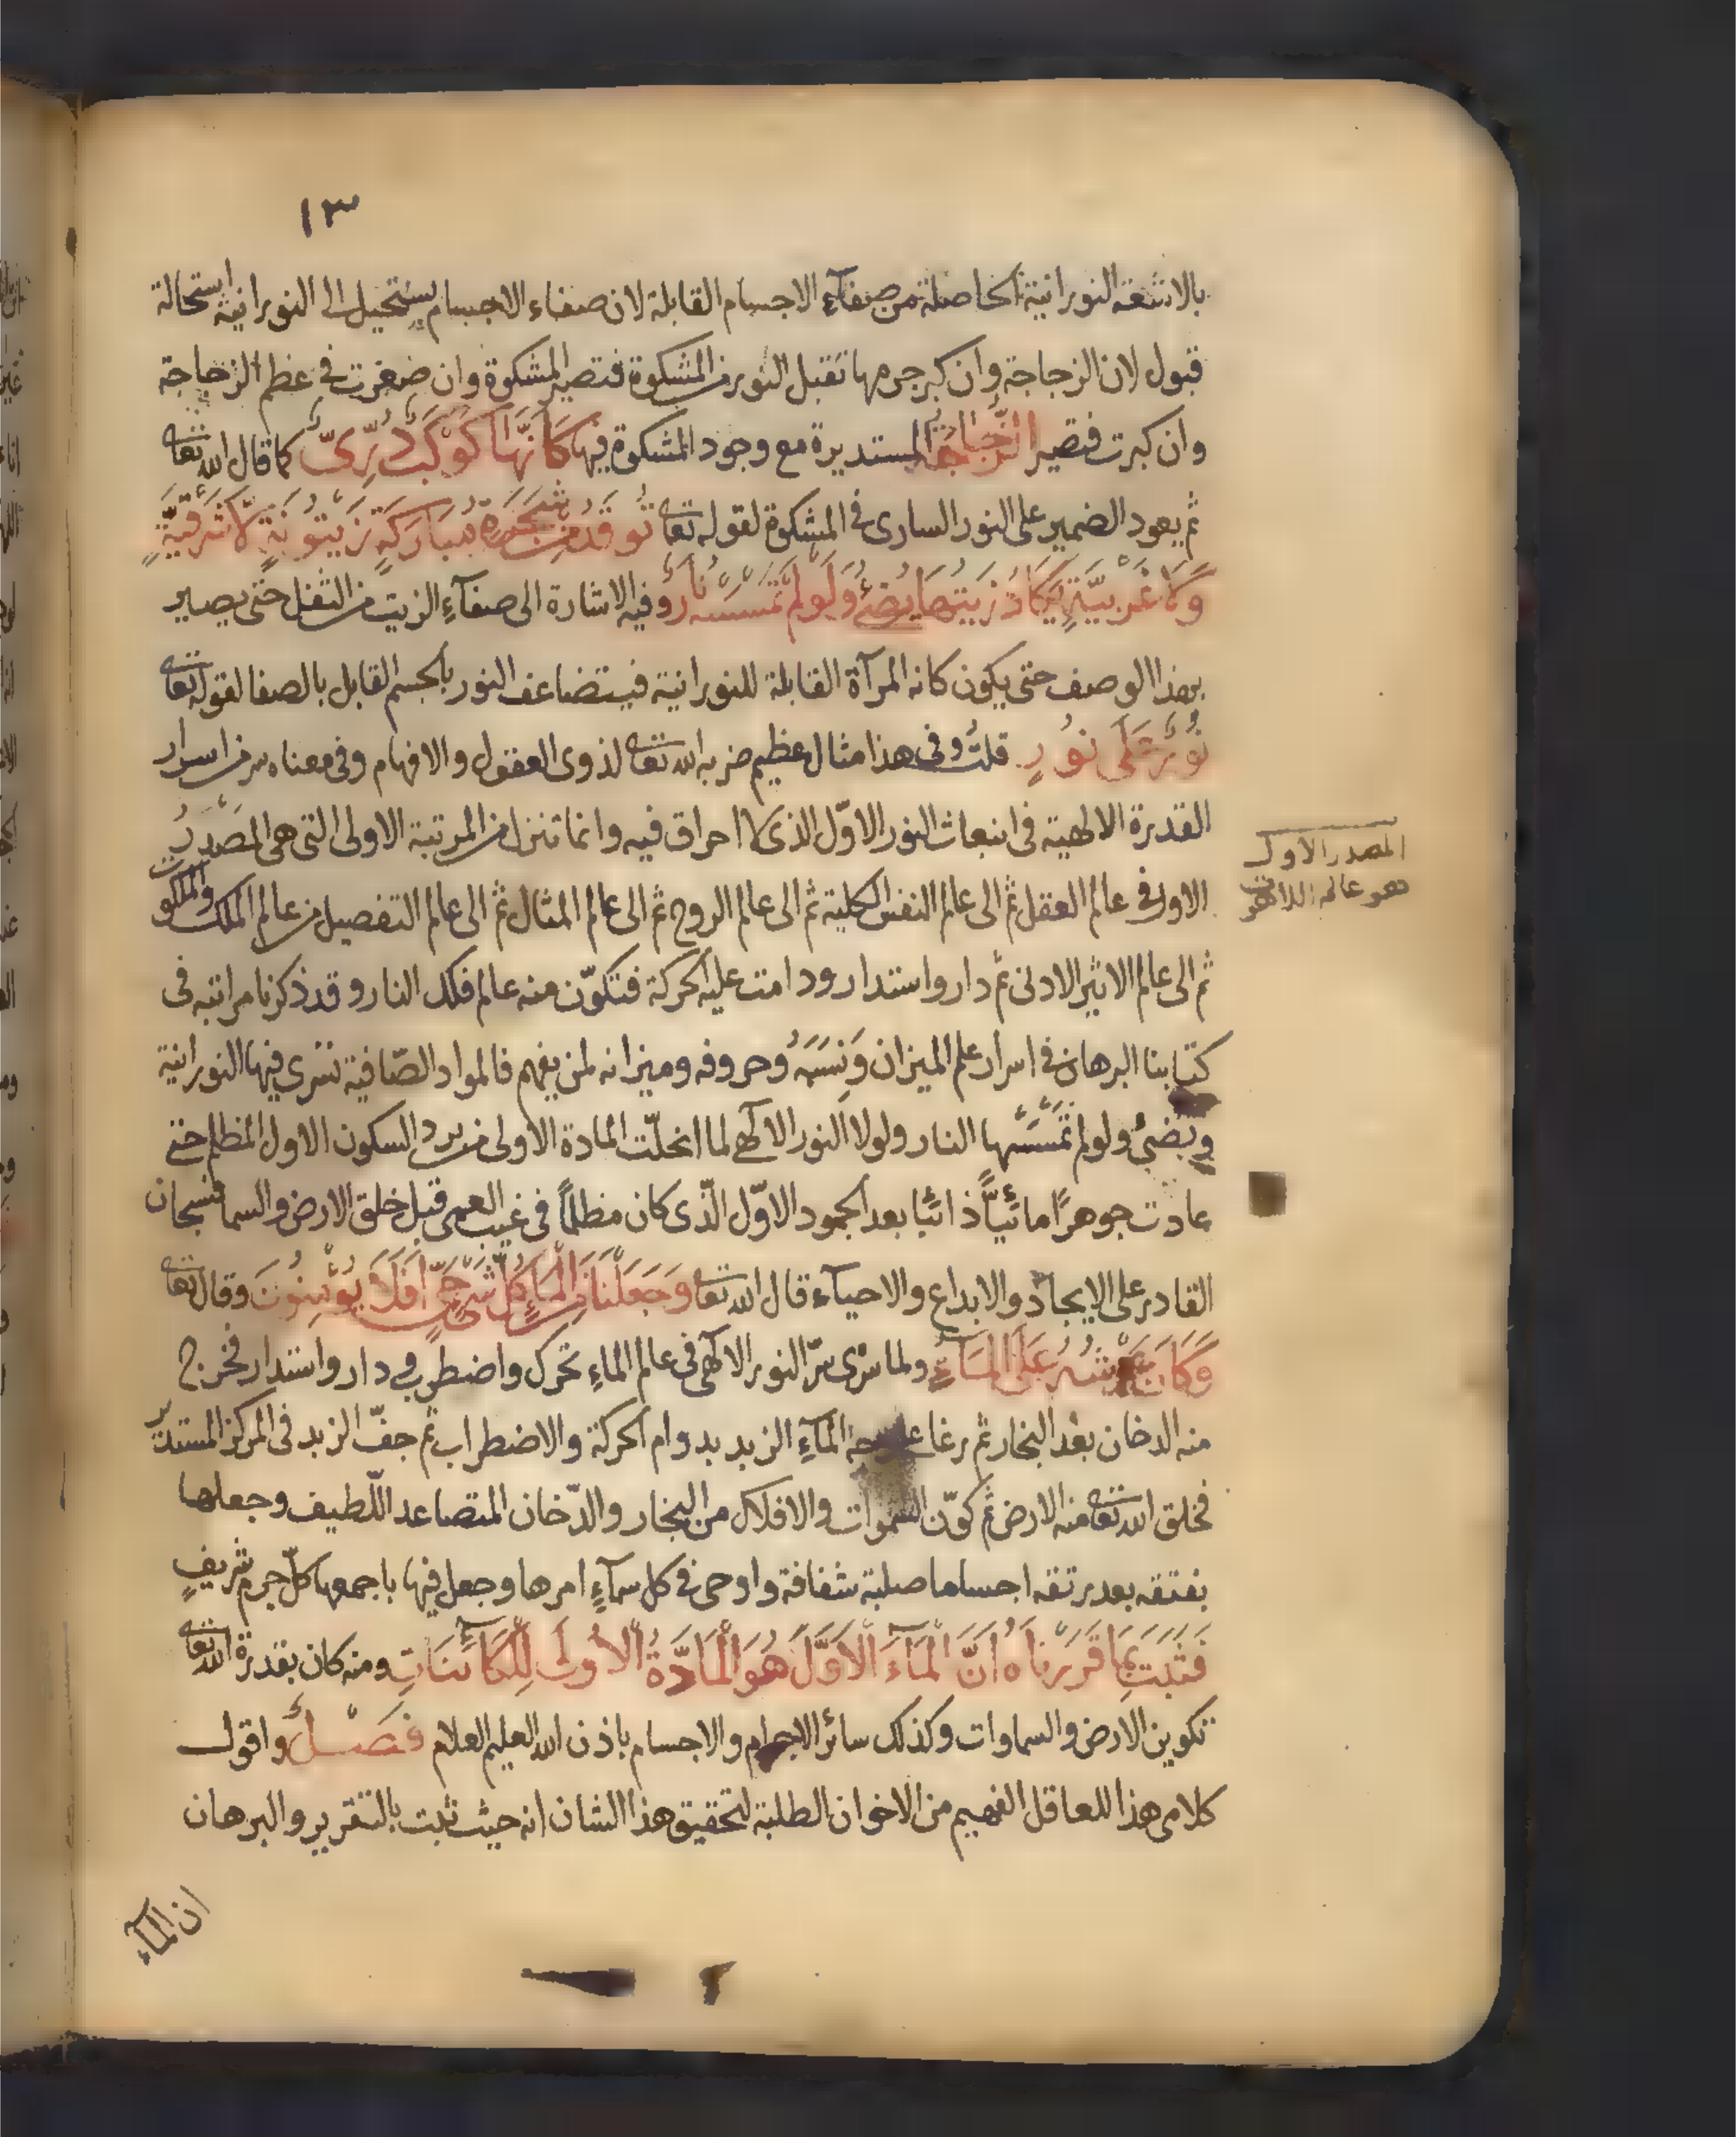 ١٣
بالاشعة النورانية الحاصلة من صفآء الاجسام القابلة لان صفاء الاجسام يستحيل الى النورانية استحالة
قبول لان الزجاجة وان كبر جرمها تقبل النور من المشكوة فتصير المشكوة وان صغرت في عظم الزجاجة
وان كبرت فتصير الزُّجَاجَةُ المستديرة مع وجود المشكوة فيها كَاَنَّهَا كَوْكَبٌ دُرِّىٌّ كما قال الله تعا
ثم يعود الضمير على النور السارى في المشكوة لقوله تعا تُوقَدُ مِنْ شَجَرَةٍ مُبَارَكَةٍ زَيْتُونَةٍ لَا شَرْقِيَّةٍ
وَلَا غَرْبِيَّةٍ يَكَادُ زَيْتُهَا يُضِئُ وَلَوْ لَمْ تَمْسَسْهُ نَارٌ وفيه الاشارة الى صفآء الزيت من الثفل حتى يصير
بهذا الوصف حتى يكون كانه المرآة القابلة للنورانية فيتضاعف النور بالجسم القابل بالصفا لقوله تعا
نُورٌ عَلَى نُورٍ قلتُ وفى هذا مثال عظيم ضربه الله تعا لذوى العقول والافهام وفى معناه سر من اسرار
القدرة الالهية فى انبعاث النور الاوّل الذى لا احراق فيه وانما تنزل من المرتبة الاولى التى هى المَصْدَرُ
الاول في عالم العقل ثم الى عالم النفس الكلية ثم الى عالم الروح ثم الى عالم المثال ثم الى عالم التفصيل من عالم الملك والملكوت
ثم الى عالم الاثير الادنى ثم دار واستدار ودامت عليه الحركة فتكوّن منه عالم فلك النار وقد ذكرنا مراتبه فى
كتابنا البرهان في اسرار علم الميزان وَنِسَبَهُ وحروفه وميزانه لمن يفهم فالمواد الصّافية تسرى فيها النورانية
ويضئ ولو لم تمسَسْها النار ولولا النور الالهى لما انحلّت المادة الاولى من برد السكون الاول المظلم حتى
عادت جوهرًا مائيًّا ذائبًا بعد الجمود الاوّل الّذى كان مظلمًا فى غيب العمى قبل خلق الارض والسما فسبحان
القادر على الايجاد والابداع والاحيآء قال الله تعا وَجَعَلْنَا مِنَ الْمَاءِ كُلَّ شَئٍ حَىٍّ اَفَلَا يُؤْمِنُونَ وقال تعا
وَكَانَ عَرْشُهُ عَلَى الْمَآءِ ولما سَرَى سرّ النور الالهى فى عالم الماءِ تحرك واضطرب ودار واستدار فخرج
منه الدخان بعْد البخار ثم رغا على وجه المآء الزبد بدوام الحركة والاضطراب ثم جفّ الزبد فى المركز المستدير
فخلق الله تعا منه الارض ثم كوّن السموات والافلاك من البخار والدّخان المتصاعد اللّطيف وجعلها
بفتقه بعد رتقه اجساما صلبة شفافة واوحى في كل سمآءٍ امرها وجعل فيها باجمعها كلّ جرم شريفٍ
فَثَبَتَ بِمَا قَرَرْنَاهُ اَنَّ الْمَآءَ الْاَوَّلَ هُوَ الْمَادَّةُ الْاُولَى لِلْكَائَنَاتِ ومنه كان بقدرة الله تعا
تكوين الارض والسماوات وكذلك سائر الاجرام والاجسام باذن الله العليم العلام فَصْلٌ واقول
كلامى هذا للعاقل الفهيم من الاخوان الطلبة لتحقيق هذا الشان انه حيث ثبت بالتقرير والبرهان
ان المآء
المصدر الاول
هو عالم اللاهوت